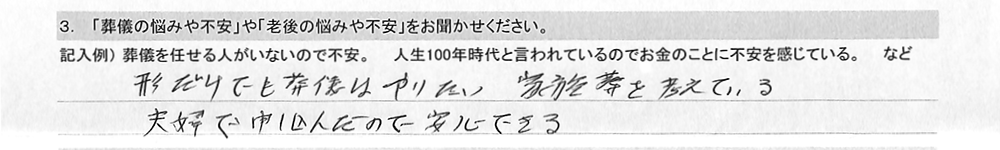 3. 「葬儀の悩みや不安」や「老後の悩みや不安」をお聞かせください。
記入例）葬儀を任せる人がいないので不安。　人生100年時代と言われているのでお金のことに不安を感じている。　など
形だけでも葬儀はやりたい　家族葬を考えている
夫婦で申込んだので安心できる